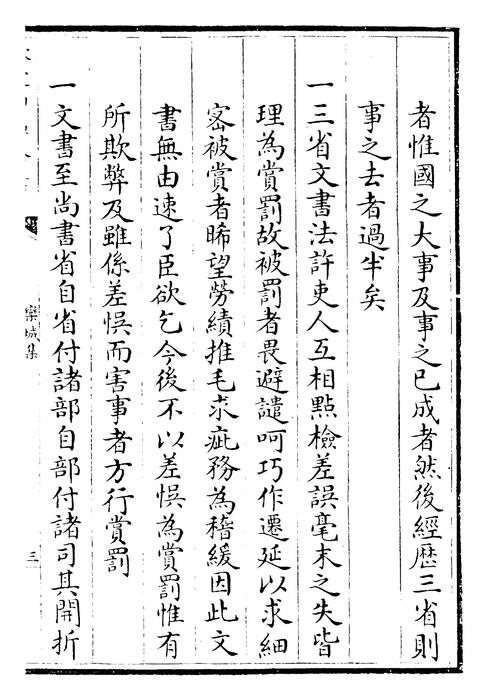 者惟國之大事及事之已成者然後經歴三省則
事之去者過半矣
一三省文書法許吏人互相㸃檢差誤毫末之失皆
理為賞罰故被罰者畏避譴呵巧作遷延以求細
宻被賞者晞望勞績推毛求疵務為稽緩因此文
書無由速了臣欲乞今後不以差悮為賞罰惟有
所欺弊及雖係差悮而害事者方行賞罰
一文書至尚書省自省付諸部自部付諸司其開折
欒城集
三